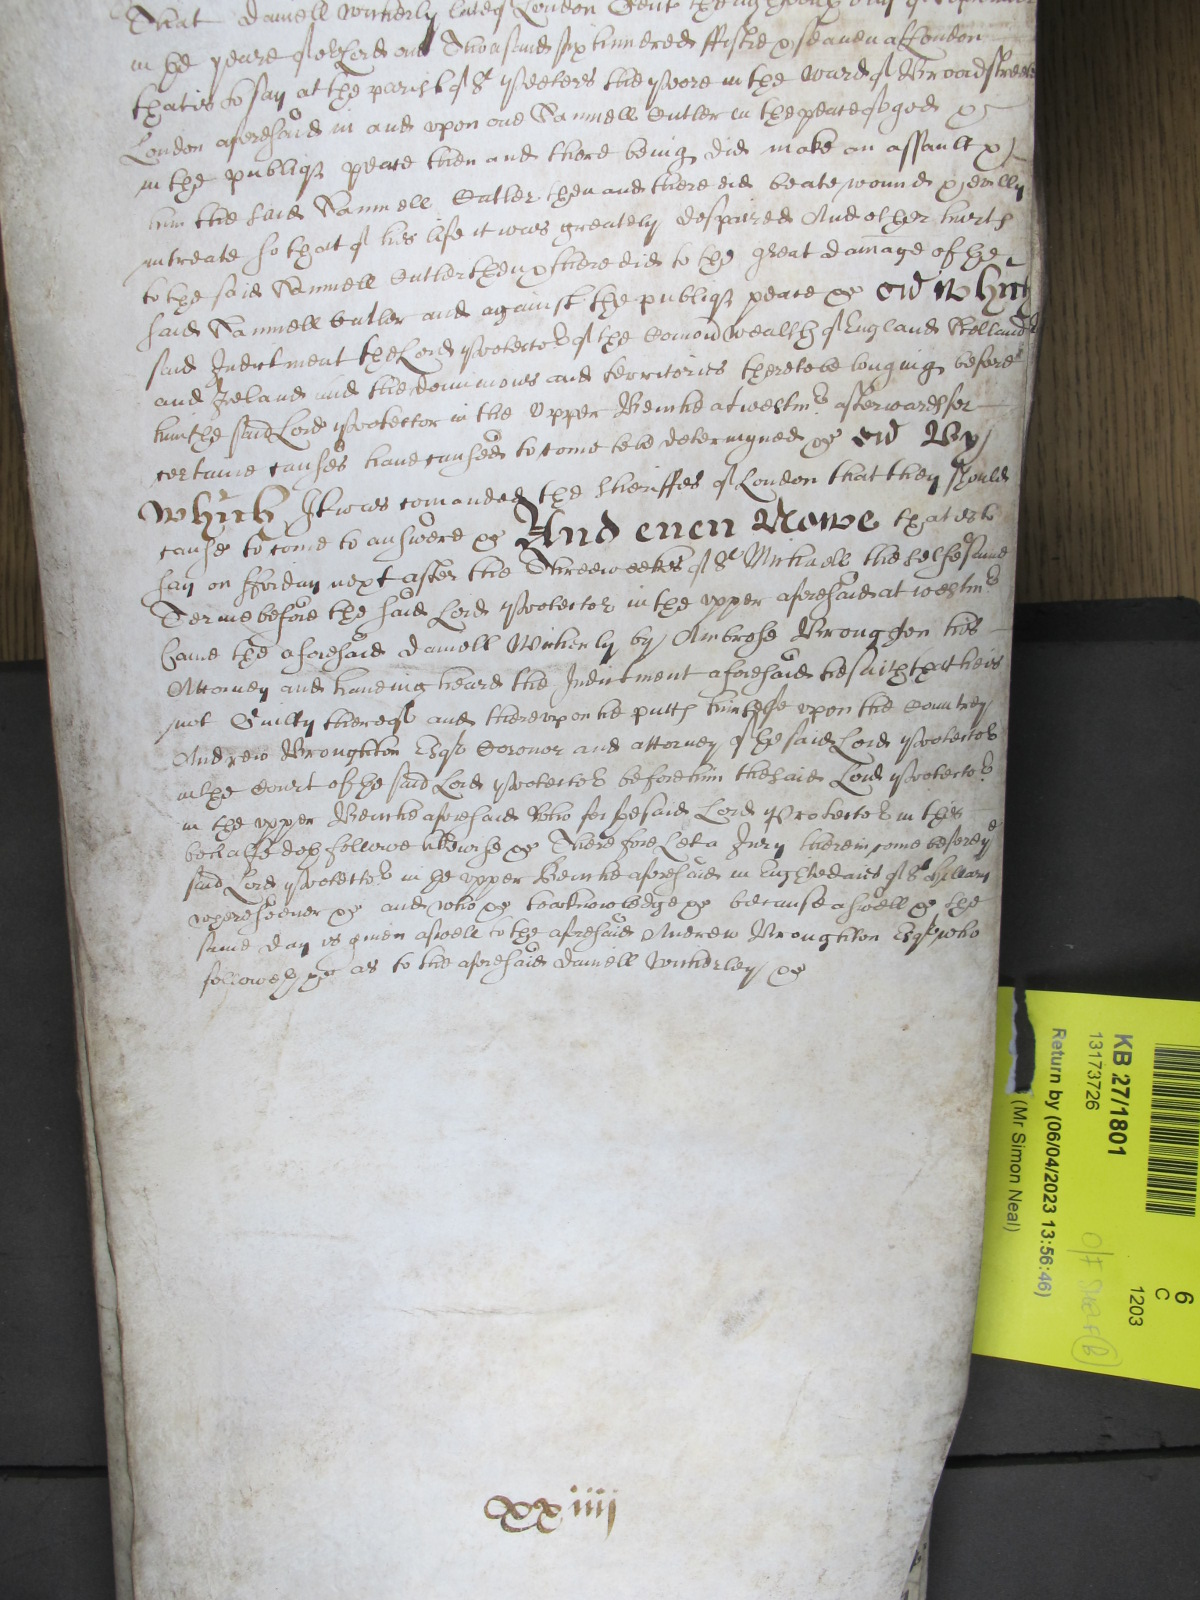 That Daniell Witherly late of London Gent the day of September
in the yeare of or Lord one Thousand six hundred fiftie & seaven at London
that is to say at the parish of St Peeters the Poore in the ward of Broadstreete
London aforesaid in and upon one Samuell Cutler in the peace of god &
in the publiq peace then and there being did make an assault &
him the said Samuell Cutler then and there did beate wound & evilly
intreate so that of his life it was greately despaired And other hurts
to the said Samuell Cutler then & there did to the great damage of the
said Samuell Cutler and against the publiq peace &c Which
said Indictment the Lord Protector of the Comonwealth of England Scotland
and Ireland and the dominions and territories thereto belonging before
him the said Lord Protector in the Upper Bench at Westmr afterwards for
certaine causes have caused to come to be determyned &c By
which It was comanded the Sheriffes of London that they should
cause to come to answere &c And even Nowe that is to
say on Fryday next after the Three weekes of St Michaell the selfe same
Terme before the said Lord Protector in the upper aforesaid at Westmr
Came the aforesaid Daniell Witherly by Ambrose Broughton his
Attorney and haveing heard the Indictment aforesaid he saith that he is
not Guilty thereof and thereupon he putts himselfe upon the Countrey
Andrew Broughton Esqr Coronor and attorney of the said Lord Protector
in the Court of the said Lord Protector before him the said Lord Protector
in the upper Bench aforesaid Who for the said Lord Protector in this
behalfe doth followe likewise &c Therefore Let a Jury therein come before the
said Lord Protector in the upper Bench aforesaid in Eight daies of St Hillary
wheresoever &c and who &c to acknowledge &c because aswell &c the
same day is given aswell to the aforesaid Andrew Broughton Esqr who
followeth &c as to the aforesaid Daniell Witherley &c
xxiiij
KB 27/1801
13173726
Return by (06/04/2023 13:56:46)
(Mr Simon Neal)
6
C
1203